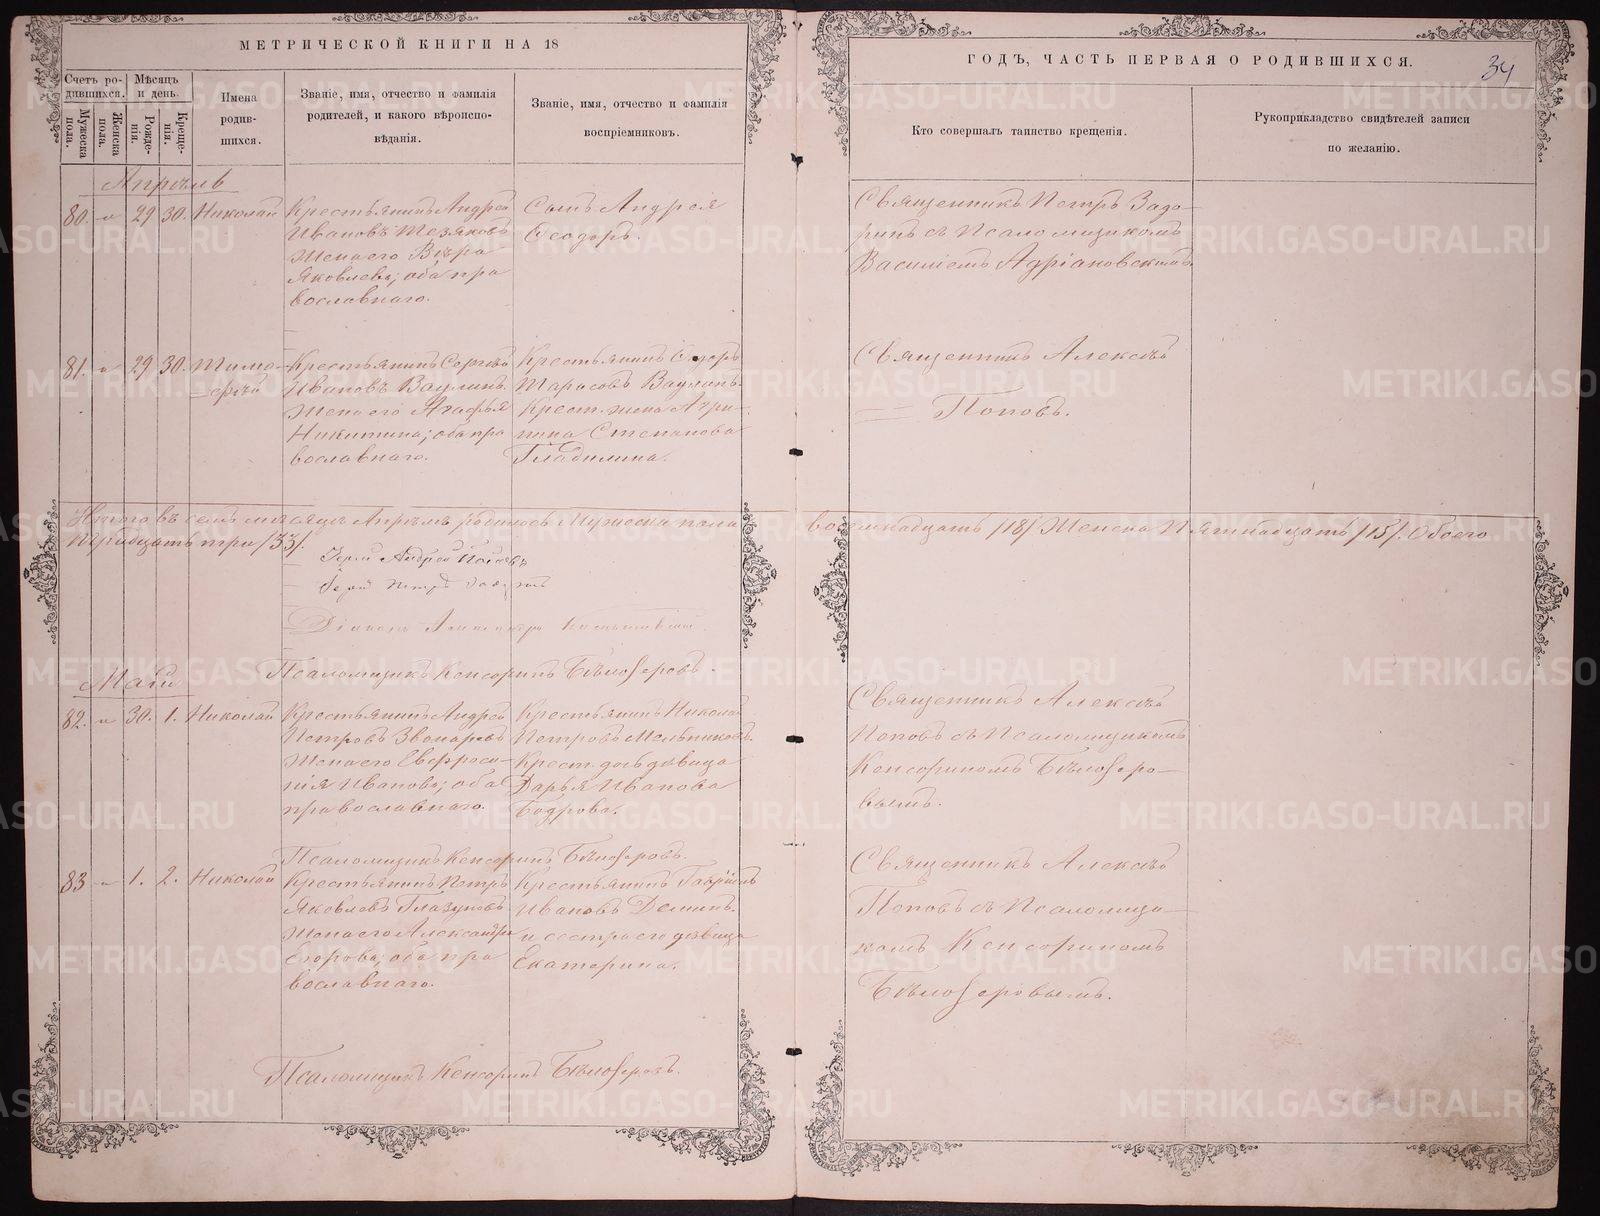 МЕТРИЧЕСКОЙ КНИГИ НА 18
Счетъ ро-
дившихся.
Мѣсяцъ
и день.
Мужеска
пола.
Женска
пола.
Рожде-
нія.
Креще-
нія.
Имена
родив-
шихся.
Званіе, имя, отчество и фамилія
родителей, и какого вѣроиспо-
вѣданія.
Званіе, имя, отчество и фамилія
воспріемниковъ.
Апрѣль
80. 29 30. Николай
Крестьянинъ Андрей
Ивановъ
Жена его Вѣра
Яковлева; оба пра
вославнаго.
Сынъ Андрея
Ѳеодоръ.
81. 29 30. Тимо-
ѳей
Крестьянинъ Сергѣй
Ивановъ Ваулинъ.
Жена его Агафья
Никитина; оба пра
вославнаго.
Крестьянинъ
Тарасовъ Ваулинъ.
Крест. жена Агри-
пина Степанова
Гладилина.
Итого въ семъ мѣсяцѣ Апрѣлѣ родилось Мужеска пола
тридцать три /33/.
Іерей Андрей
Іерей Петръ
Діаконъ
Псаломщикъ Кенсоринъ Бѣлозеровъ.
Май
82. 30. 1. Николай
Крестьянинъ Андрей
Петровъ Звонаревъ
Жена его Евфроси-
нія Иванова; оба
православнаго.
Крестьянинъ Николай
Петровъ Мельниковъ.
Крест. дочь дѣвица
Дарья Иванова
Бодрова.
Псаломщикъ Кенсоринъ Бѣлозеровъ.
83 1. 2. Николай
Крестьянинъ Петръ
Яковлевъ Глазуновъ
Жена его Александра
Егорова; оба пра
вославнаго.
Крестьянинъ Гавріилъ
Ивановъ Деминъ.
и сестра его дѣвица
Екатерина.
Псаломщикъ Кенсоринъ Бѣлозеровъ.
ГОДЪ, ЧАСТЬ ПЕРВАЯ О РОДИВШИХСЯ.
34
Кто совершалъ таинство крещенія.
Рукоприкладство свидѣтелей записи
по желанію.
Священникъ Петръ Задо-
ринъ съ Псаломщикомъ
Василіемъ Адріановскимъ.
Священникъ Алексѣй
Поповъ.
восемнадцать /18/ Женска Пятнадцать /15/. Обоего
Священникъ Алексѣй
Поповъ съ Псаломщикомъ
Кенсориномъ Бѣлозеро-
вымъ.
Священникъ Алексѣй
Поповъ съ Псаломщи-
комъ Кенсориномъ
Бѣлозеровымъ.
METRIKI.GASO-URAL.RU